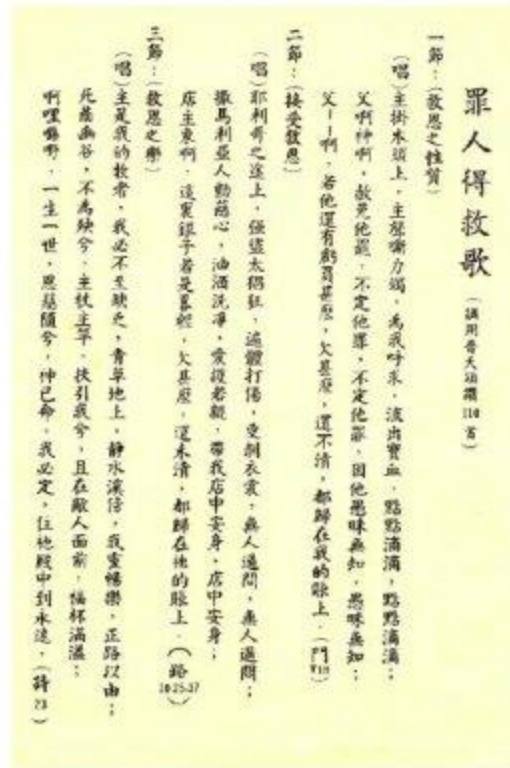 罪人得救歌 (調用普天頌讚110首)
一節:(救恩之性質)
(唱)主掛木頭上,主聲嘶力竭,為我呼求,流出寶血,點點滴滴,點點滴滴;
父啊神啊,赦免他罷,不定他罪,不定他罪,因他愚昧無知,愚昧無知;
父——啊,若他還有虧負甚麼,欠甚麼,還不清,都歸在我的賬上。(門 V18)
二節:(接受救恩)
(唱)耶利哥之途上,強盜太猖狂,遍體打傷,受剝衣裳,無人過問,無人過問;
撒馬利亞人動慈心,油酒洗淨,愛護若親,帶我店中安身,店中安身;
店主東啊,這裏銀子若是算輕,欠甚麼,還未清,都歸在他的賬上。(路 10:25-37)
三節:(救恩之樂)
(唱)主是我的牧者,我必不至缺乏,青草地上,靜水溪佇,我靈暢樂,正路以由;
死蔭幽谷,不為殃兮,主杖主竿,扶引我兮,且在敵人面前,福杯滿溢;
啊哩,一生一世,恩慈隨兮,神已命,我必定,住祂殿中到永遠。(詩 23)